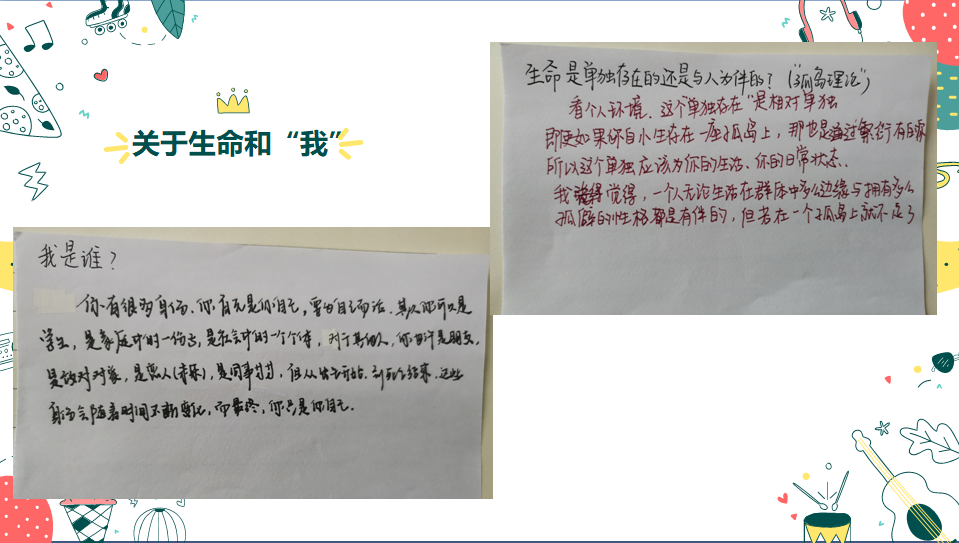 关于生命和“我”
我是谁？
你有很多身份、你首先是你自己，要为自己而活。其次你可以是
学生，是家庭中的一份子，是社会中的一个个体，对于其他人，你或许是朋友，
是敌对对象，是恋人（亲属），是同事等等，但从出生开始，到死亡结束，这些
身份会随着时间不断变化，而最终，你只是你自己。
生命是单独存在的还是与人为伴的？（“孤岛理论”）
看个人环境、这个单独存在“是相对单独
即便如果你自小生存在一座孤岛上，那也是通过繁衍有的你
所以这个单独应该为你的生活、你的日常状态、
我觉得，一个人无论生活在群体中多么边缘与拥有多么
孤僻的性格都是有伴的，但若在一个孤岛上就不是了